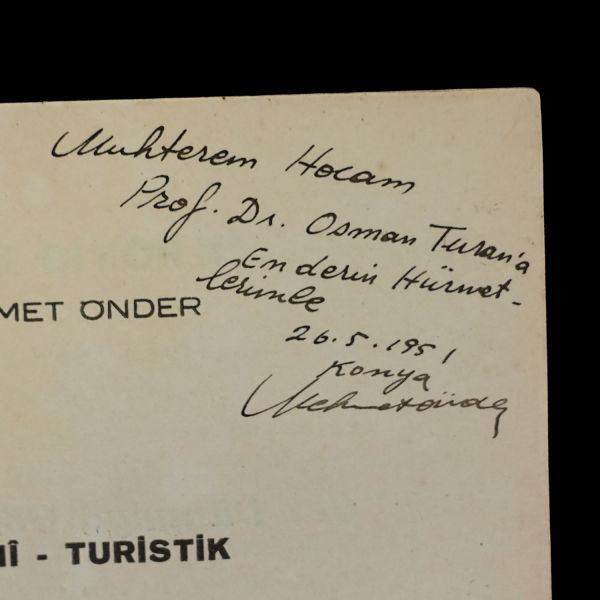 Muhterem Hocam
Prof. Dr. Osman Turan'a
En derin Hürmet-
lerimle
MET ÖNDER
26.5.1951
Konya
Mehmetönder
Î - TURİSTİK